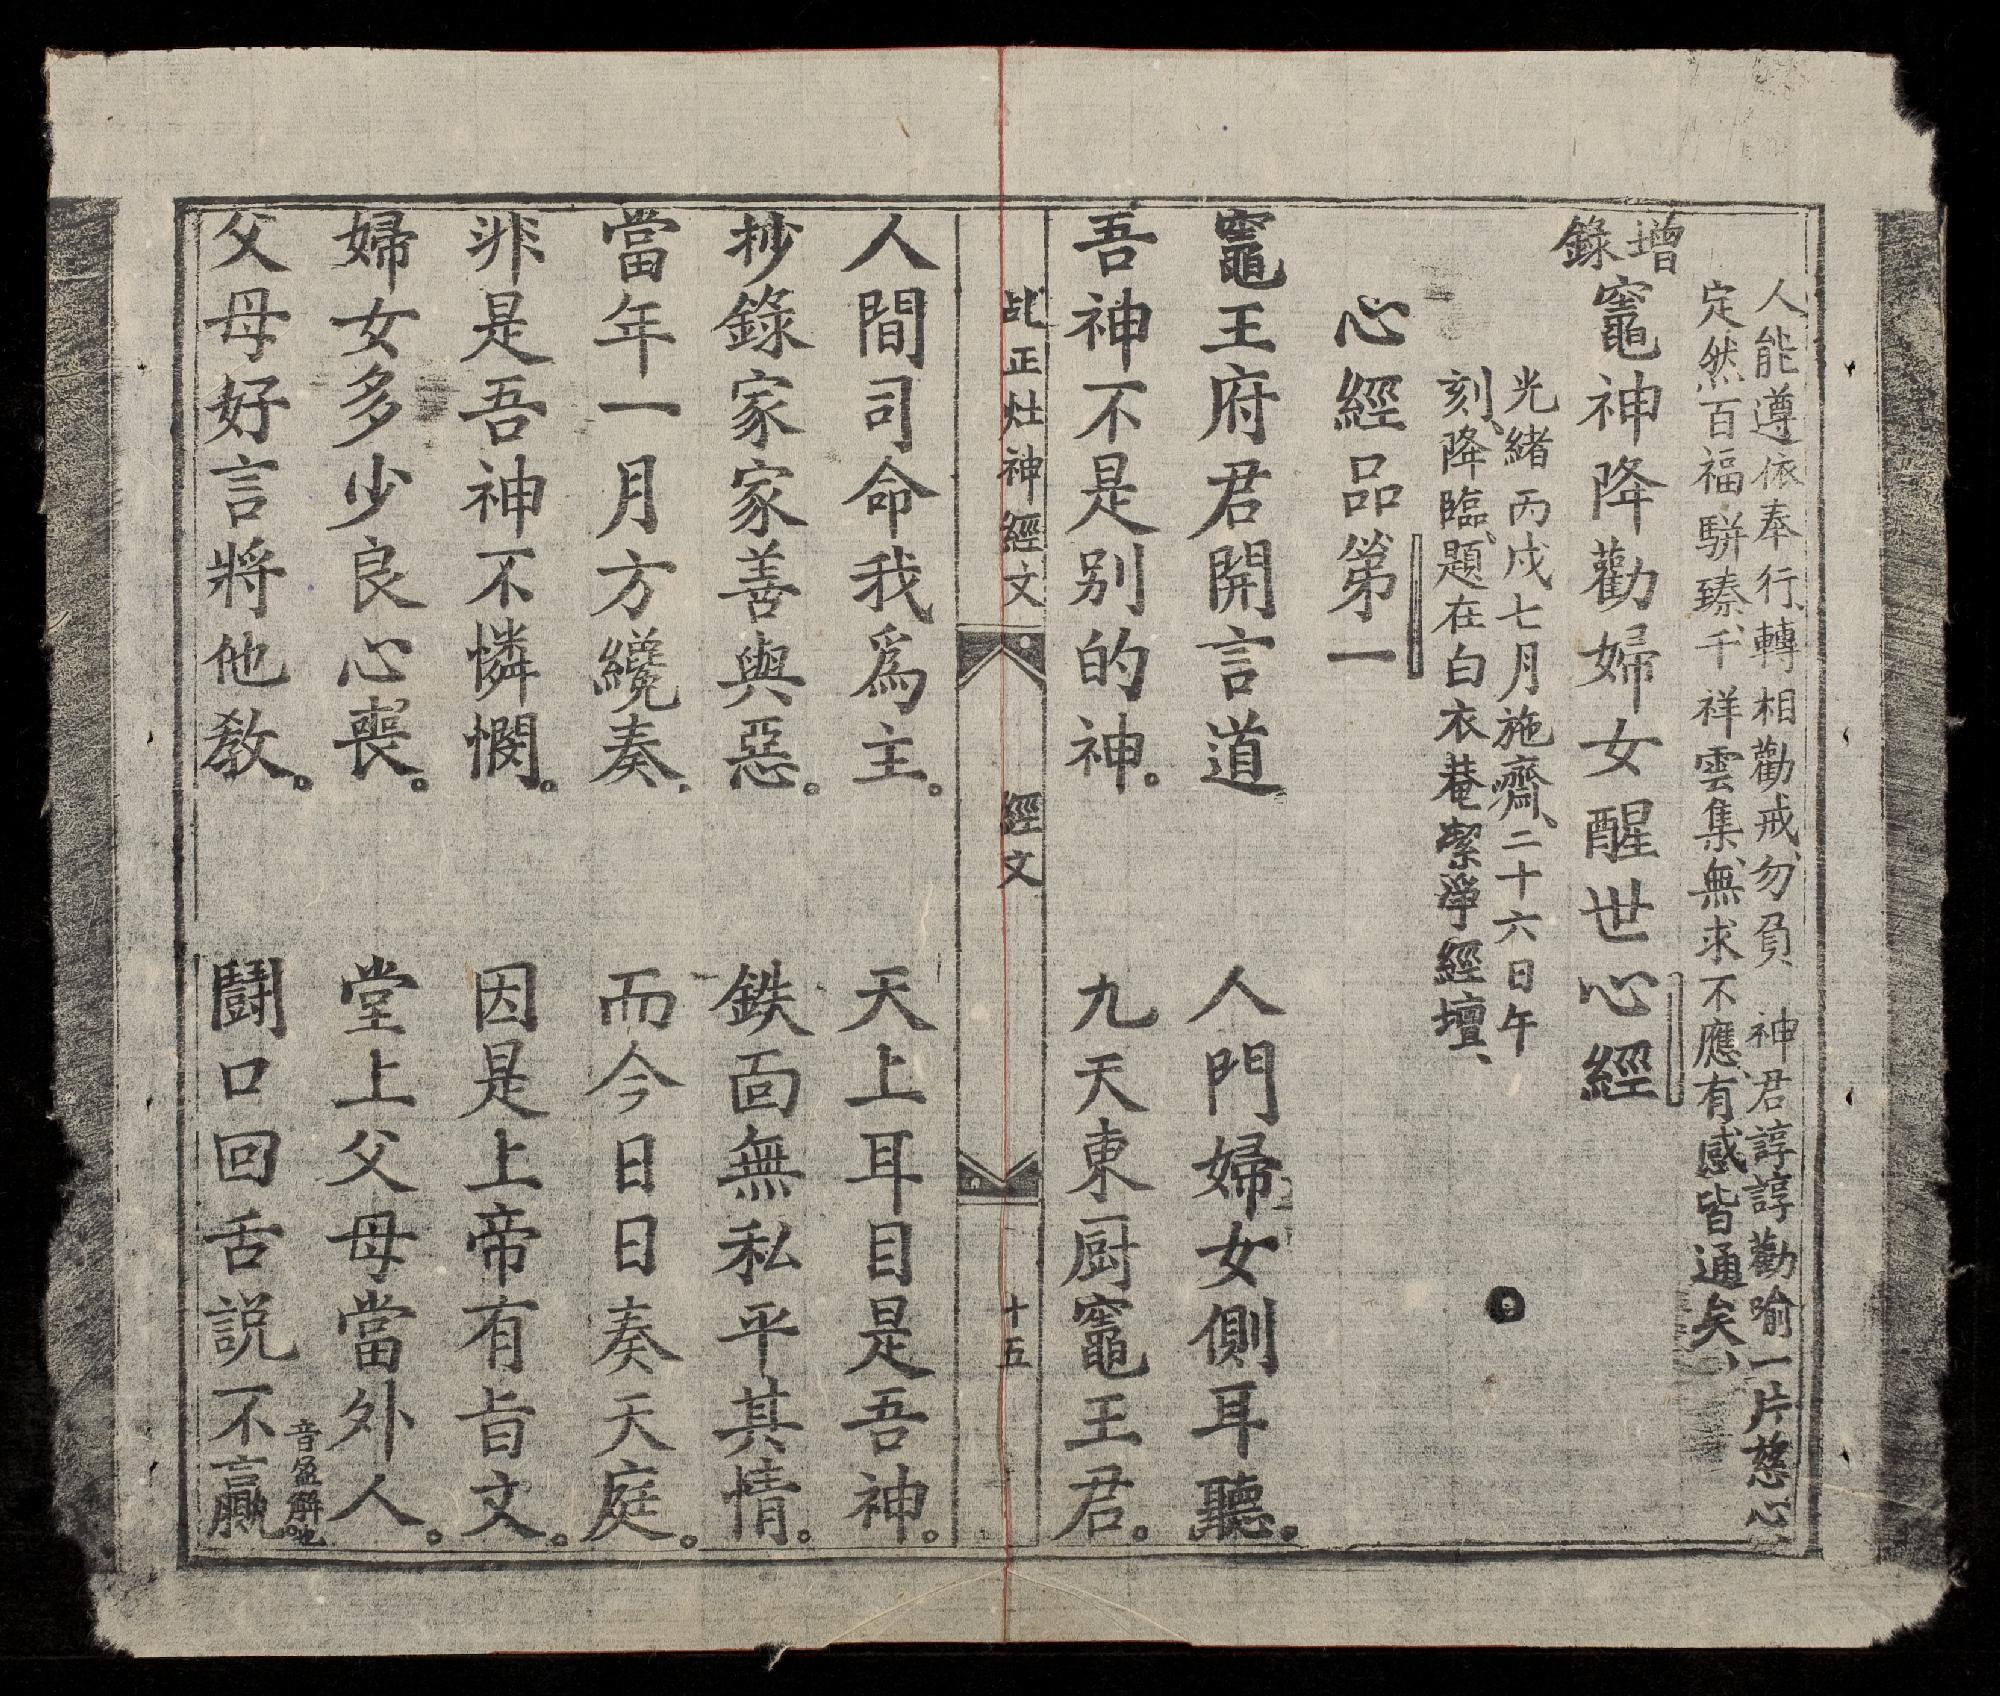 人能遵依奉行、轉相勸戒、勿負　神君諄諄勸喻一片慈心、
定然百福駢臻、千祥雲集、無求不應、有感皆通矣、
增錄竈神降勸婦女醒世心經
光緒丙戌七月施齋、二十六日午
刻、降臨、題在白衣菴潔淨經壇、
心經品第一
竈王府君開言道　人門婦女側耳聽。
吾神不是別的神。　九天東厨竈王君。
正灶神經文　經文　十五
人間司命我爲主。　天上耳目是吾神。
抄錄家家善與惡。　鉄面無私平其情。
當年一月方纔奏.　而今日日奏天庭。
非是吾神不憐憫。　因是上帝有旨文。
婦女多少良心喪。　堂上父母當外人。
父母好言將他敎。　鬪口回舌說不贏音盈解也。